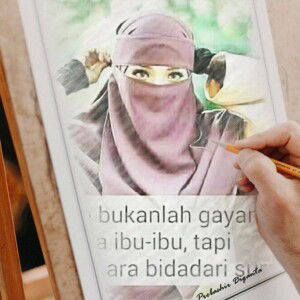 bukanlah gayan
a ibu-ibu, tapi
ara bidadari sur
Probashir Diganta